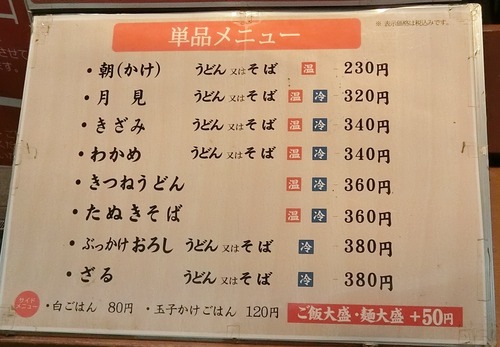 単品メニュー
※ 表示価格は税込みです。
・朝(かけ) うどん 又は そば 温 230円
・月 見 うどん 又は そば 温 冷 320円
・きざみ うどん 又は そば 温 冷 340円
・わかめ うどん 又は そば 温 冷 340円
・きつねうどん 温 冷 360円
・たぬきそば 温 冷 360円
・ぶっかけおろし うどん 又は そば 冷 380円
・ざる うどん 又は そば 冷 380円
サイドメニュー ・白ごはん 80円 ・玉子かけごはん 120円 ご飯大盛・麺大盛 +50円